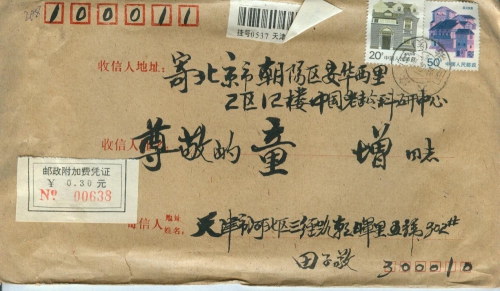 100011
挂号0537 天津
20分 中国人民邮政
50分 中国人民邮政
收信人地址:寄北京市朝阳区安华西里
2区12楼中国老龄科研中心
收信人姓名:尊敬的童 增同志
邮政附加费凭证
¥ 0.30 元
No 00638
寄信人地址姓名:天津市河北区三经路 晖里五 302#
田子敬
300010